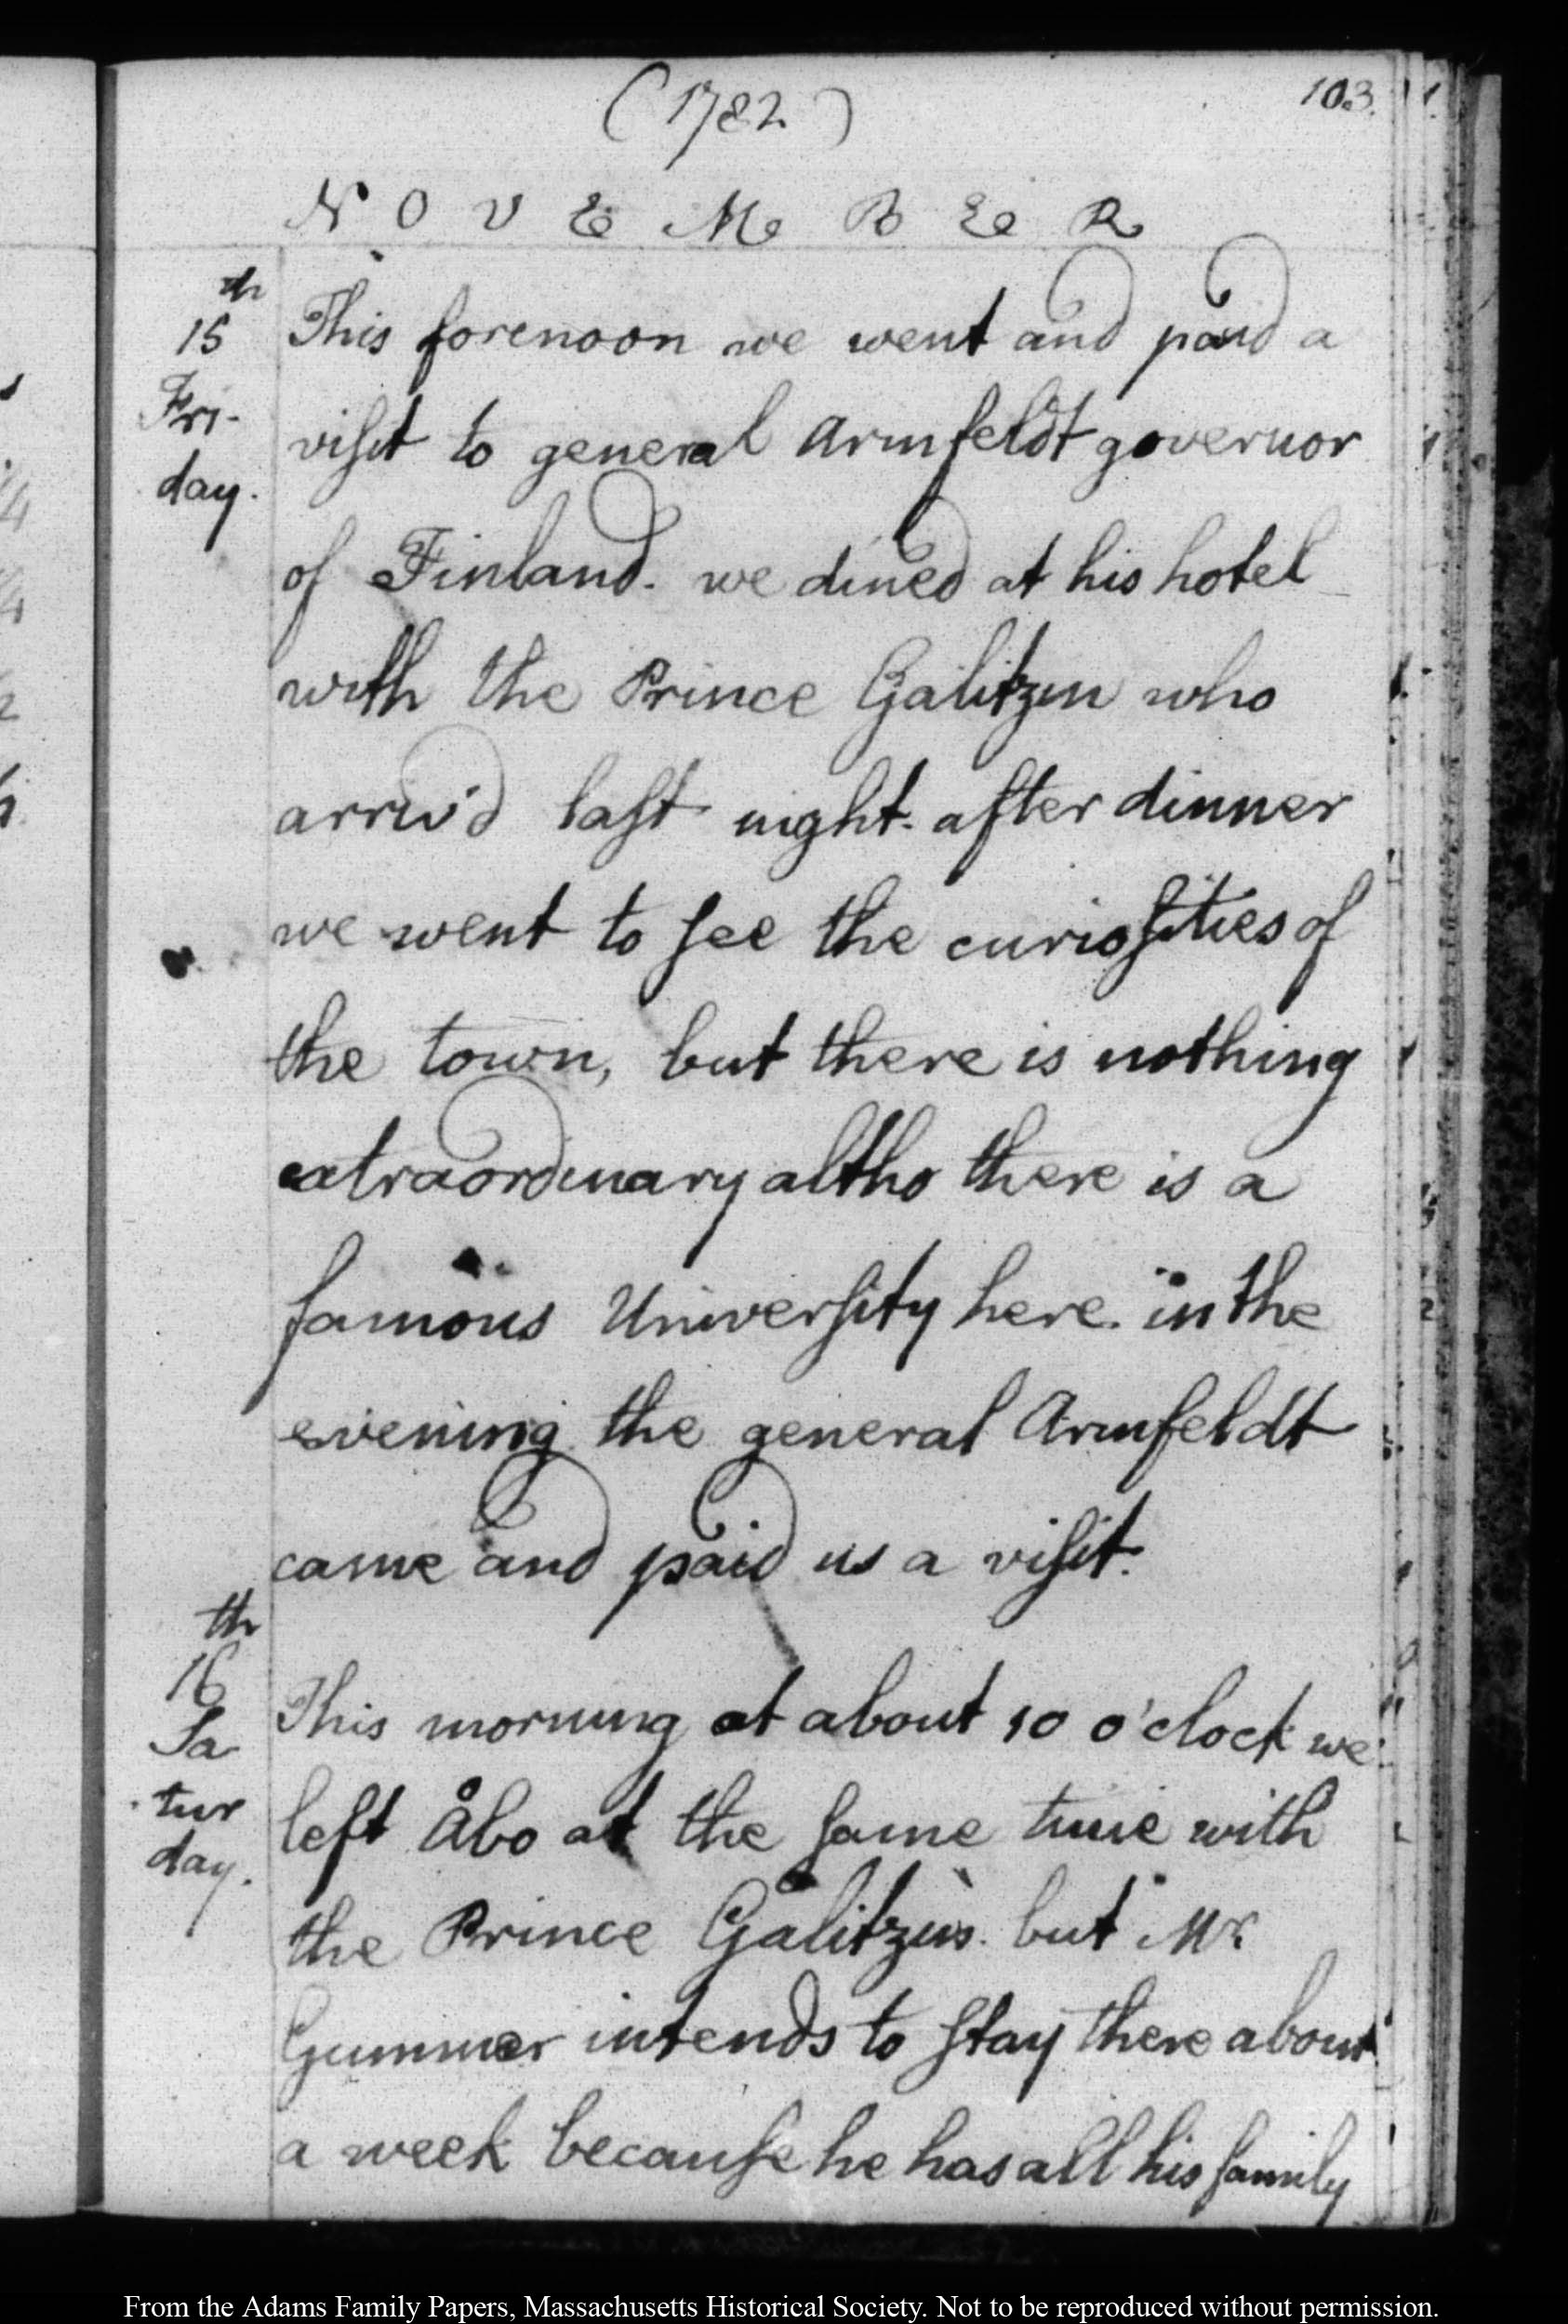 (1782)
103.
NOVEMBER
th
15
Fri-
day.
This forenoon we went and paid a
visit to general Armfeldt governor
of Finland. we dined at his hotel
with the Prince Galitzin who
arriv'd last night. after dinner
we went to see the curiosities of
the town, but there is nothing
extraordinary altho there is a
famous University here. in the
evening the general Armfeldt
came and paid us a visit.
th
16
Sa
tur
day.
This morning at about 10 o'clock we
left Åbo at the same time with
the Prince Galitzin. but Mr.
Gummer intends to stay there about
a week because he has all his family
From the Adams Family Papers, Massachusetts Historical Society. Not to be reproduced without permission.